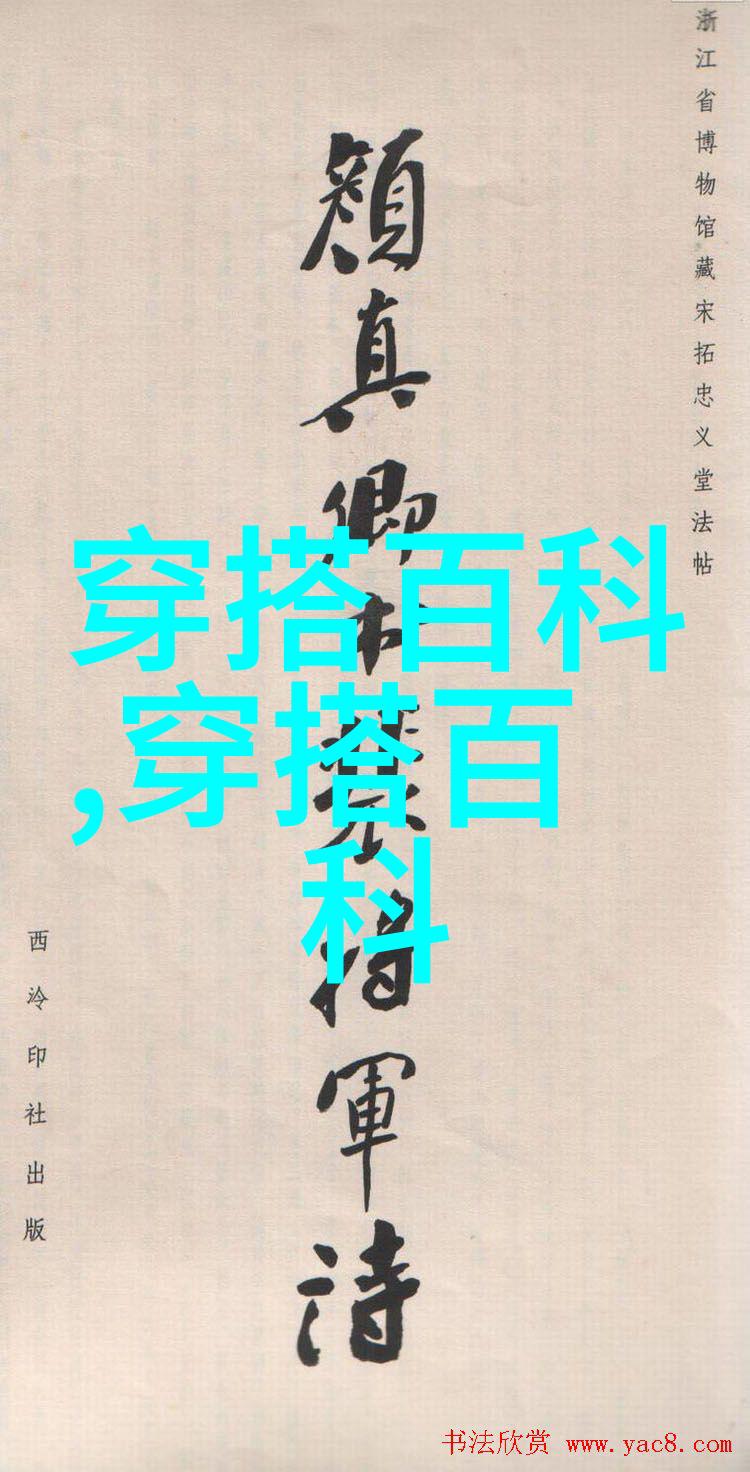 浙江省博物馆藏宋拓忠义堂法帖
顔真卿书裴将軍詩
西泠印社出版
穿搭百科
,穿搭百
科
书法欣赏 www.yac8.com